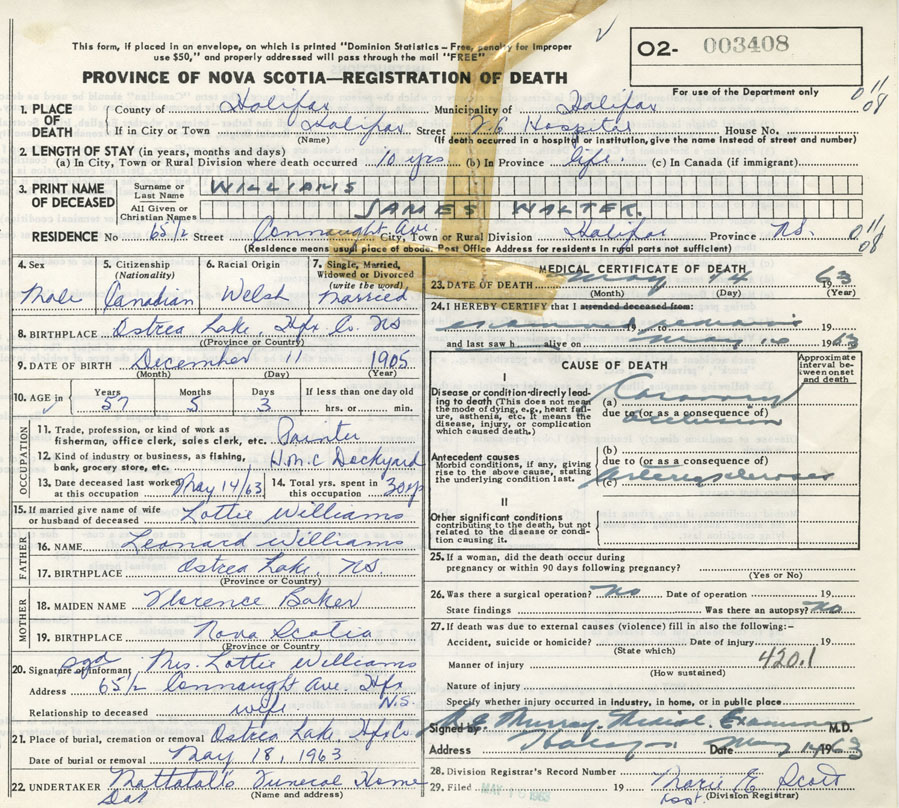 This form, if placed in an envelope, on which is printed "Dominion Statistics – Free, penalty for improper
use $50," and properly addressed will pass through the mail "FREE"
O2- 003408
PROVINCE OF NOVA SCOTIA—REGISTRATION OF DEATH
For use of the Department only
1. PLACE OF DEATH County of Halifax Municipality of Halifax
If in City or Town Halifax Street V.G. Hospital House No.
(Name) (If death occurred in a hospital or institution, give the name instead of street and number)
2. LENGTH OF STAY (in years, months and days)
(a) In City, Town or Rural Division where death occurred 10 yrs (b) In Province life. (c) In Canada (if immigrant)
3. PRINT NAME OF DECEASED Surname or Last Name WILLIAMS
All Given or Christian Names JAMES WALTER.
RESIDENCE No 65 1/2 Street Connaught Ave. City, Town or Rural Division Halifax Province N.S.
(Residence means usual place of abode. Post Office Address for residents in rural parts not sufficient)
011
08
011
08
4. Sex Male
5. Citizenship (Nationality) Canadian
6. Racial Origin Welsh
7. Single, Married, Widowed or Divorced (write the word) Married
8. BIRTHPLACE Ostrea Lake, Hfx Co. NS
(Province or Country)
9. DATE OF BIRTH December 11 1905
(Month) (Day) (Year)
10. AGE in Years 57 Months 5 Days 3 If less than one day old hrs. or min.
OCCUPATION
11. Trade, profession, or kind of work as fisherman, office clerk, sales clerk, etc. Painter
12. Kind of industry or business, as fishing, bank, grocery store, etc. H.M.C Dockyard
13. Date deceased last worked at this occupation May 14/63 14. Total yrs. spent in this occupation 30 yrs
15. If married give name of wife or husband of deceased Lottie Williams
FATHER
16. NAME Leonard Williams
17. BIRTHPLACE Ostrea Lake, NS.
(Province or Country)
MOTHER
18. MAIDEN NAME Florence Baker
19. BIRTHPLACE Nova Scotia
(Province or Country)
20. Signature of informant sgd Mrs. Lottie Williams
Address 65 1/2 Connaught Ave. Hfx
Relationship to deceased wife N.S.
21. Place of burial, cremation or removal Ostrea Lake Hfx Co
Date of burial or removal May 18, 1963
22. UNDERTAKER Mattatall's Funeral Home
(Name and address)
MEDICAL CERTIFICATE OF DEATH
23. DATE OF DEATH May 14 1963
(Month) (Day) (Year)
24. I HEREBY CERTIFY that I attended deceased from:
examined remains 19 to 19
and last saw h alive on May 1963
CAUSE OF DEATH
Approximate interval between onset and death
I
Disease or condition directly leading to death (This does not mean the mode of dying, e.g., heart failure, asthenia, etc. It means the disease, injury, or complication which caused death.)
(a) Coronary
due to (or as a consequence of)
occlusion
Antecedent causes
Morbid conditions, if any, giving rise to the above cause, stating the underlying condition last.
(b)
due to (or as a consequence of)
(c) Arteriosclerosis
II
Other significant conditions
contributing to the death, but not related to the disease or condition causing it.
25. If a woman, did the death occur during pregnancy or within 90 days following pregnancy?
(Yes or No)
26. Was there a surgical operation? No Date of operation 19
State findings Was there an autopsy? No
27. If death was due to external causes (violence) fill in also the following:–
Accident, suicide or homicide? Date of injury 19
(State which)
Manner of injury 420.1
(How sustained)
Nature of injury
Specify whether injury occurred in industry, in home, or in public place
Signed by Murray Medical Examiner M.D.
Address Halifax Date May 1963
28. Division Registrar's Record Number
29. Filed MAY 1963 19 Marie E Scott
(Division Registrar)